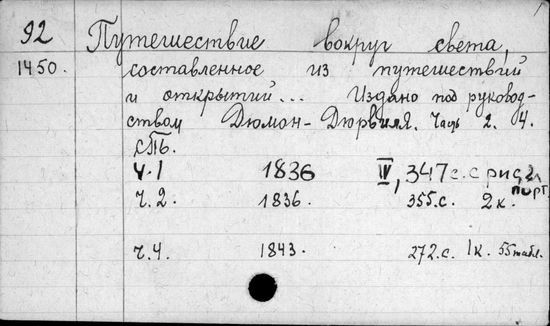 92 Путешествие вокруг света,
1450. составленное из путешествий
и открытий... Издано под руковод-
ством Дюмон-Дюрвиля. Часть 2. 4.
СПБ.
Ч.1 1836 IV, 347 с. с рис, 2
порт.
Ч.2. 1836. 355.с. 2 к.
Ч.4. 1843. 272.с. 1к. 55 табл.